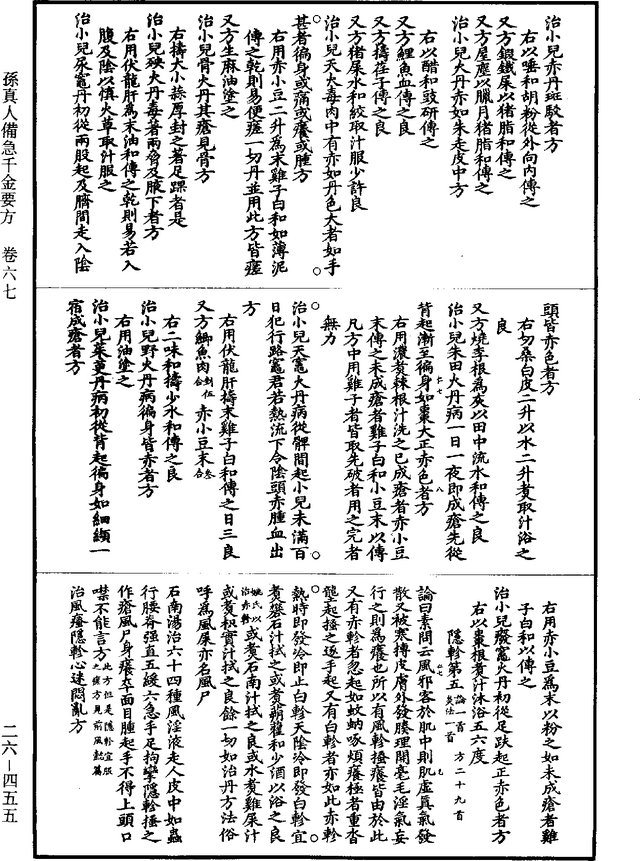 孫真人備急千金要方　卷六七
二六－四五五
治小兒赤丹斑駮者方
右以唾和胡粉從外向內傅之
又方鍛鐵屎以猪脂和傅之
又方屋塵以臘月猪脂和傅之
治小兒火丹赤如朱走皮中方
右以醋和豉研傅之
又方鯉魚血傅之良
又方擣荏子傅之良
又方猪屎水和絞取汁服少許良
治小兒天火毒肉中有赤如丹色大者如手
甚者徧身或痛或癢或腫方
右用赤小豆二升為末雞子白和如薄泥
傅之乾則易便瘥一切丹並用此方皆瘥
又方生麻油塗之
治小兒骨火丹其瘡見骨方
右擣大小蒜厚封之著足踝者是
治小兒殃火丹毒著兩脅及腋下者方
右用伏龍肝為末油和傅之乾則易若入
腹及陰以慎火草取汁服之
治小兒尿竈丹初從兩股起及臍間走入陰
頭皆赤色者方
右切桑白皮二升以水二升煑取汁浴之
良
又方燒李根為灰以田中流水和傅之良
治小兒朱田火丹病一日一夜即成瘡先從
背起漸至徧身如棗大正赤色者方
右用濃煑棘根汁洗之已成瘡者赤小豆
末傅之未成瘡者雞子白和小豆末以傅
凡方中用雞子者皆取先破者用之完者
無力
治小兒天竈火丹病從髀間起小兒未滿百
日犯行路竈君若熱流下令陰頭赤腫血出
方
右用伏龍肝擣末雞子白和傅之日三良
又方鯽魚肉剉伍合 赤小豆末叁合
右二味和擣少水和傅之良
治小兒野火丹病徧身皆赤者方
右用油塗之
治小兒茱萸丹病初從背起徧身如細纈一
宿成瘡者方
右用赤小豆為末以粉之如未成瘡者雞
子白和以傅之
治小兒廢竈火丹初從足趺起正赤色者方
右以棗根煑汁沐浴五六度
隱軫第五 論一首 方二十九首 灸法一首
論曰素問云風邪客於肌中則肌虛真氣發
散又被寒搏皮膚外發腠理開毫毛淫氣妄
行之則為癢也所以有風軫搔癢皆由於此
又有赤軫者忽起如蚊蚋啄煩癢極者重沓
壟起搔之逐手起又有白軫者亦如此赤軫
熱時即發冷即止白軫天陰冷即發白軫宜
煑礬石汁拭之或煑蒴藋和少酒以浴之良
姚氏以治赤軫或煑石南汁拭之良或水煑雞屎汁
或煑枳實汁拭之良餘一切如治丹方法俗
呼為風屎亦名風尸
石南湯治六十四種風淫液走人皮中如蟲
行腰脊強直五緩六急手足拘攣隱軫搔之
作瘡風尸身癢卒面目腫起手不得上頭口
噤不能言方此方但是隱軫宜服之瘥方見前風懿篇
治風癢隱軫心迷悶亂方